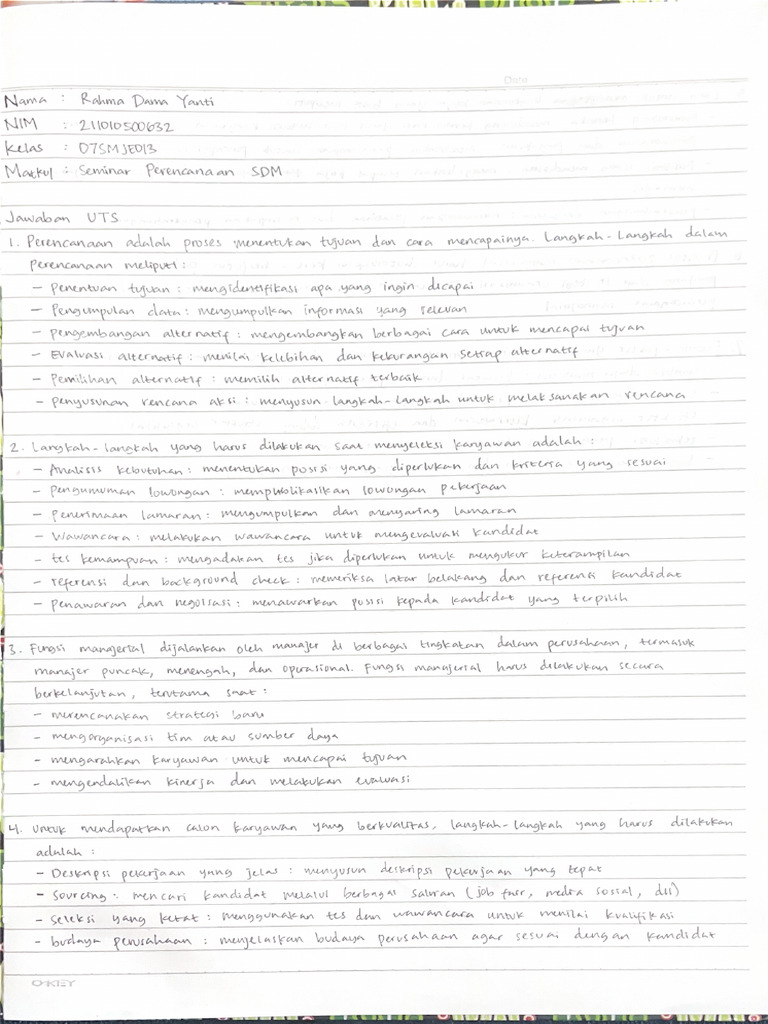 Date
Nama : Rahma Dama Yanti
NIM : 211010500632
Kelas : 07SMJE013
Matkul : Seminar Perencanaan SDM
Jawaban UTS
1. Perencanaan adalah proses menentukan tujuan dan cara mencapainya. Langkah-Langkah dalam
Perencanaan meliputi :
- Penentuan tujuan : mengidentifikasi apa yang ingin dicapai
- Pengumpulan data : mengumpulkan informasi yang relevan
- Pengembangan alternatif : mengembangkan berbagai cara untuk mencapai tujuan
- Evaluasi alternatif : menilai kelebihan dan kekurangan setiap alternatif
- Pemilihan alternatif : memilih alternatif terbaik
- Penyusunan rencana aksi : menyusun langkah-langkah untuk melaksanakan rencana
2. Langkah-langkah yang harus dilakukan saat menyeleksi karyawan adalah :
- Analisis kebutuhan : menentukan posisi yang diperlukan dan kriteria yang sesuai
- Pengumuman lowongan : mempublikasikan lowongan pekerjaan
- Penerimaan lamaran : mengumpulkan dan menyaring lamaran
- Wawancara : melakukan wawancara untuk mengevaluasi kandidat
- tes kemampuan : mengadakan tes jika diperlukan untuk mengukur keterampilan
- referensi dan background check : memeriksa latar belakang dan referensi kandidat
- penawaran dan negoisasi : menawarkan posisi kepada kandidat yang terpilih
3. Fungsi manajerial dijalankan oleh manajer di berbagai tingkatan dalam perusahaan, termasuk
manajer puncak, menengah, dan operasional. Fungsi manajerial harus dilakukan secara
berkelanjutan, terutama saat :
- merencanakan strategi baru
- mengorganisasi tim atau sumber daya
- mengarahkan karyawan untuk mencapai tujuan
- mengendalikan kinerja dan melakukan evaluasi
4. Untuk mendapatkan calon karyawan yang berkualitas, langkah-langkah yang harus dilakukan
adalah :
- Deskripsi pekerjaan yang jelas : menyusun deskripsi pekerjaan yang tepat
- Sourcing : mencari kandidat melalui berbagai saluran (job fair, media sosial, dll)
- Seleksi yang ketat : menggunakan tes dan wawancara untuk menilai kualifikasi
- budaya perusahaan : menjelaskan budaya perusahaan agar sesuai dengan kandidat
O-KEY